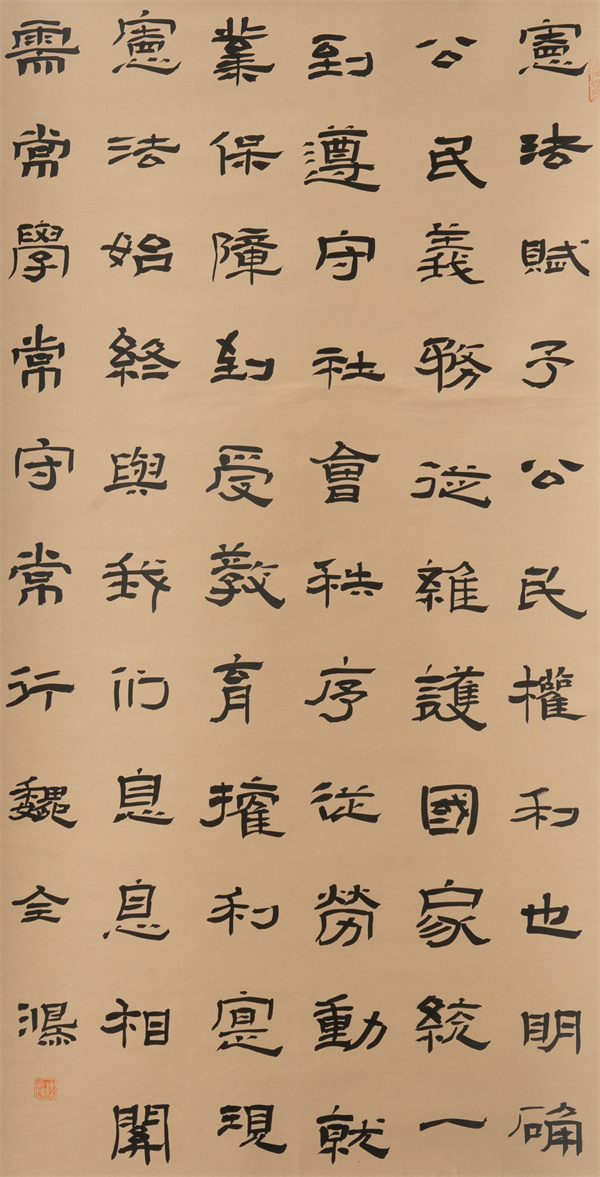 憲法賦予公民權利也明确
公民義務從維護國家統一
到遵守社會秩序從勞動就
業保障到受教育權利寔現
憲法始終與我們息息相關
需常學常守常行魏全鴻